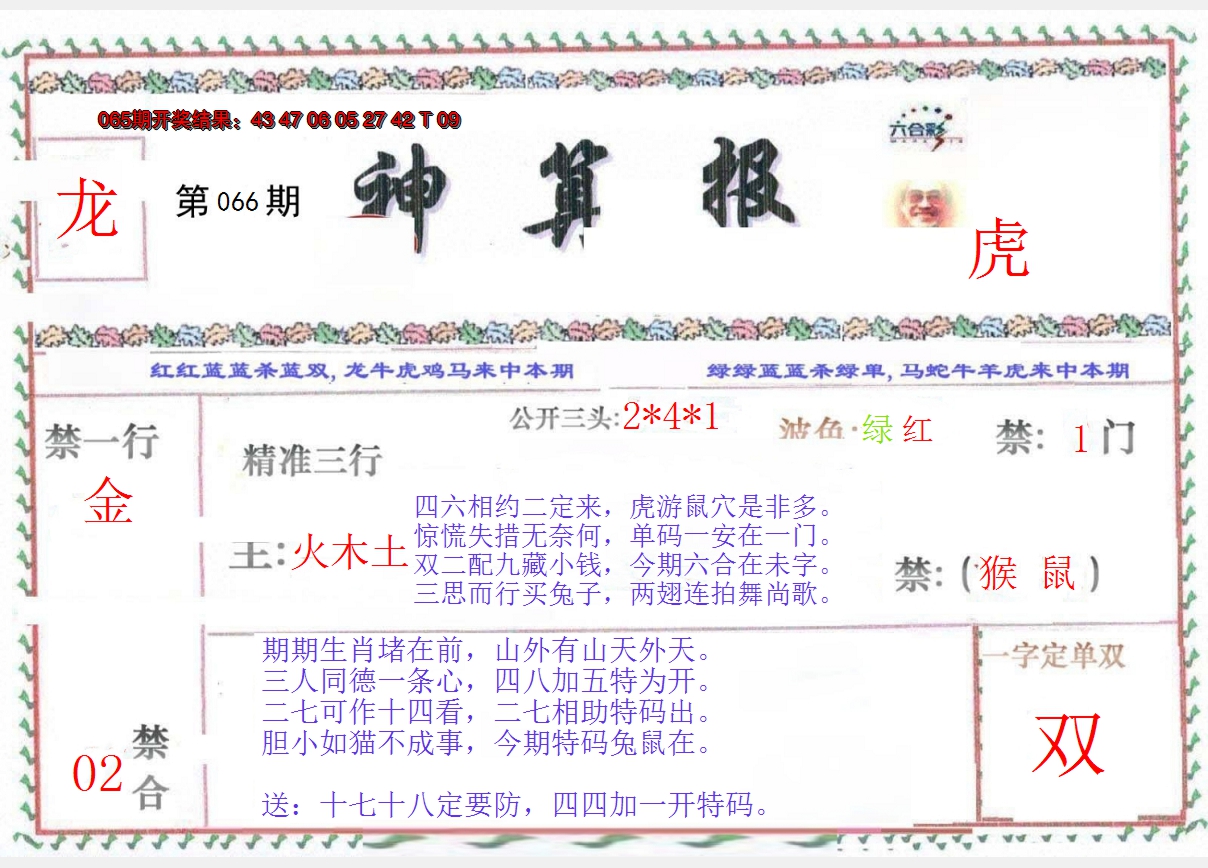 065期开奖结果：43 47 06 05 27 42 T 09
六合彩
龙
第 066 期
神 算 报
虎
红红蓝蓝杀蓝双, 龙牛虎鸡马来中本期
绿绿蓝蓝杀绿单, 马蛇牛羊虎来中本期
公开三头:2*4*1
波色·绿 红
禁: 1 门
禁一行
金
精准三行
主:火木土
四六相约二定来，虎游鼠穴是非多。
惊慌失措无奈何，单码一安在一门。
双二配九藏小钱，今期六合在未字。
三思而行买兔子，两翅连拍舞尚歌。
禁:(猴 鼠)
期期生肖堵在前，山外有山天外天。
三人同德一条心，四八加五特为开。
二七可作十四看，二七相助特码出。
胆小如猫不成事，今期特码兔鼠在。
送：十七十八定要防，四四加一开特码。
02
禁合
一字定单双
双